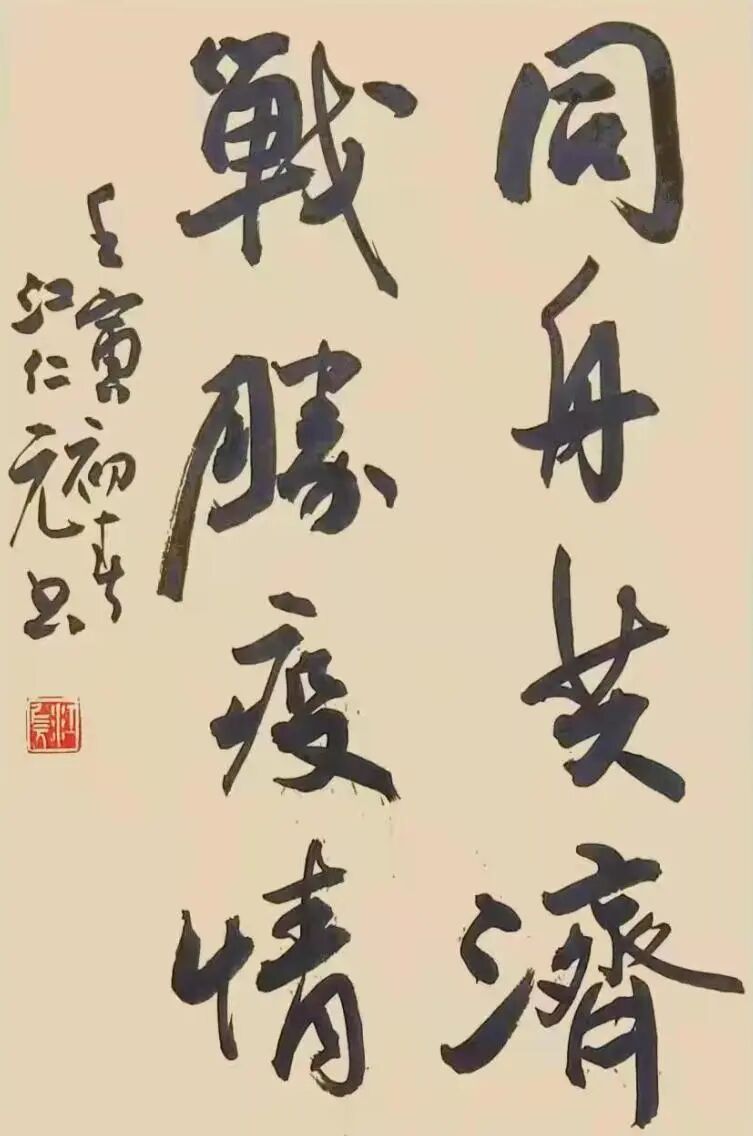 同舟共濟
戰勝疫情
壬寅初春
江仁元书